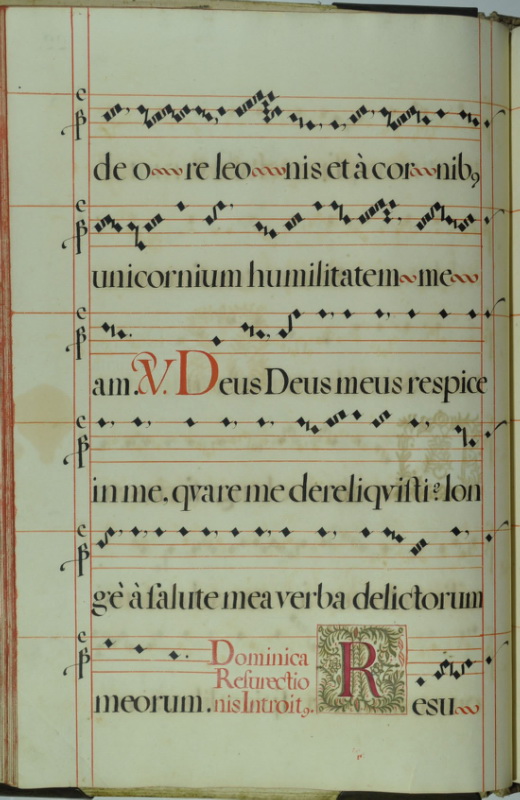 de o re leo nis et à cor nibꝯ
unicornium humilitatem me
am. V. Deus Deus meus respice
in me, qvare me dereliqviſti? lon
gè à ſalute mea verba delictorum
meorum. Dominica
Reſurectio
nis Introitꝯ. Resu